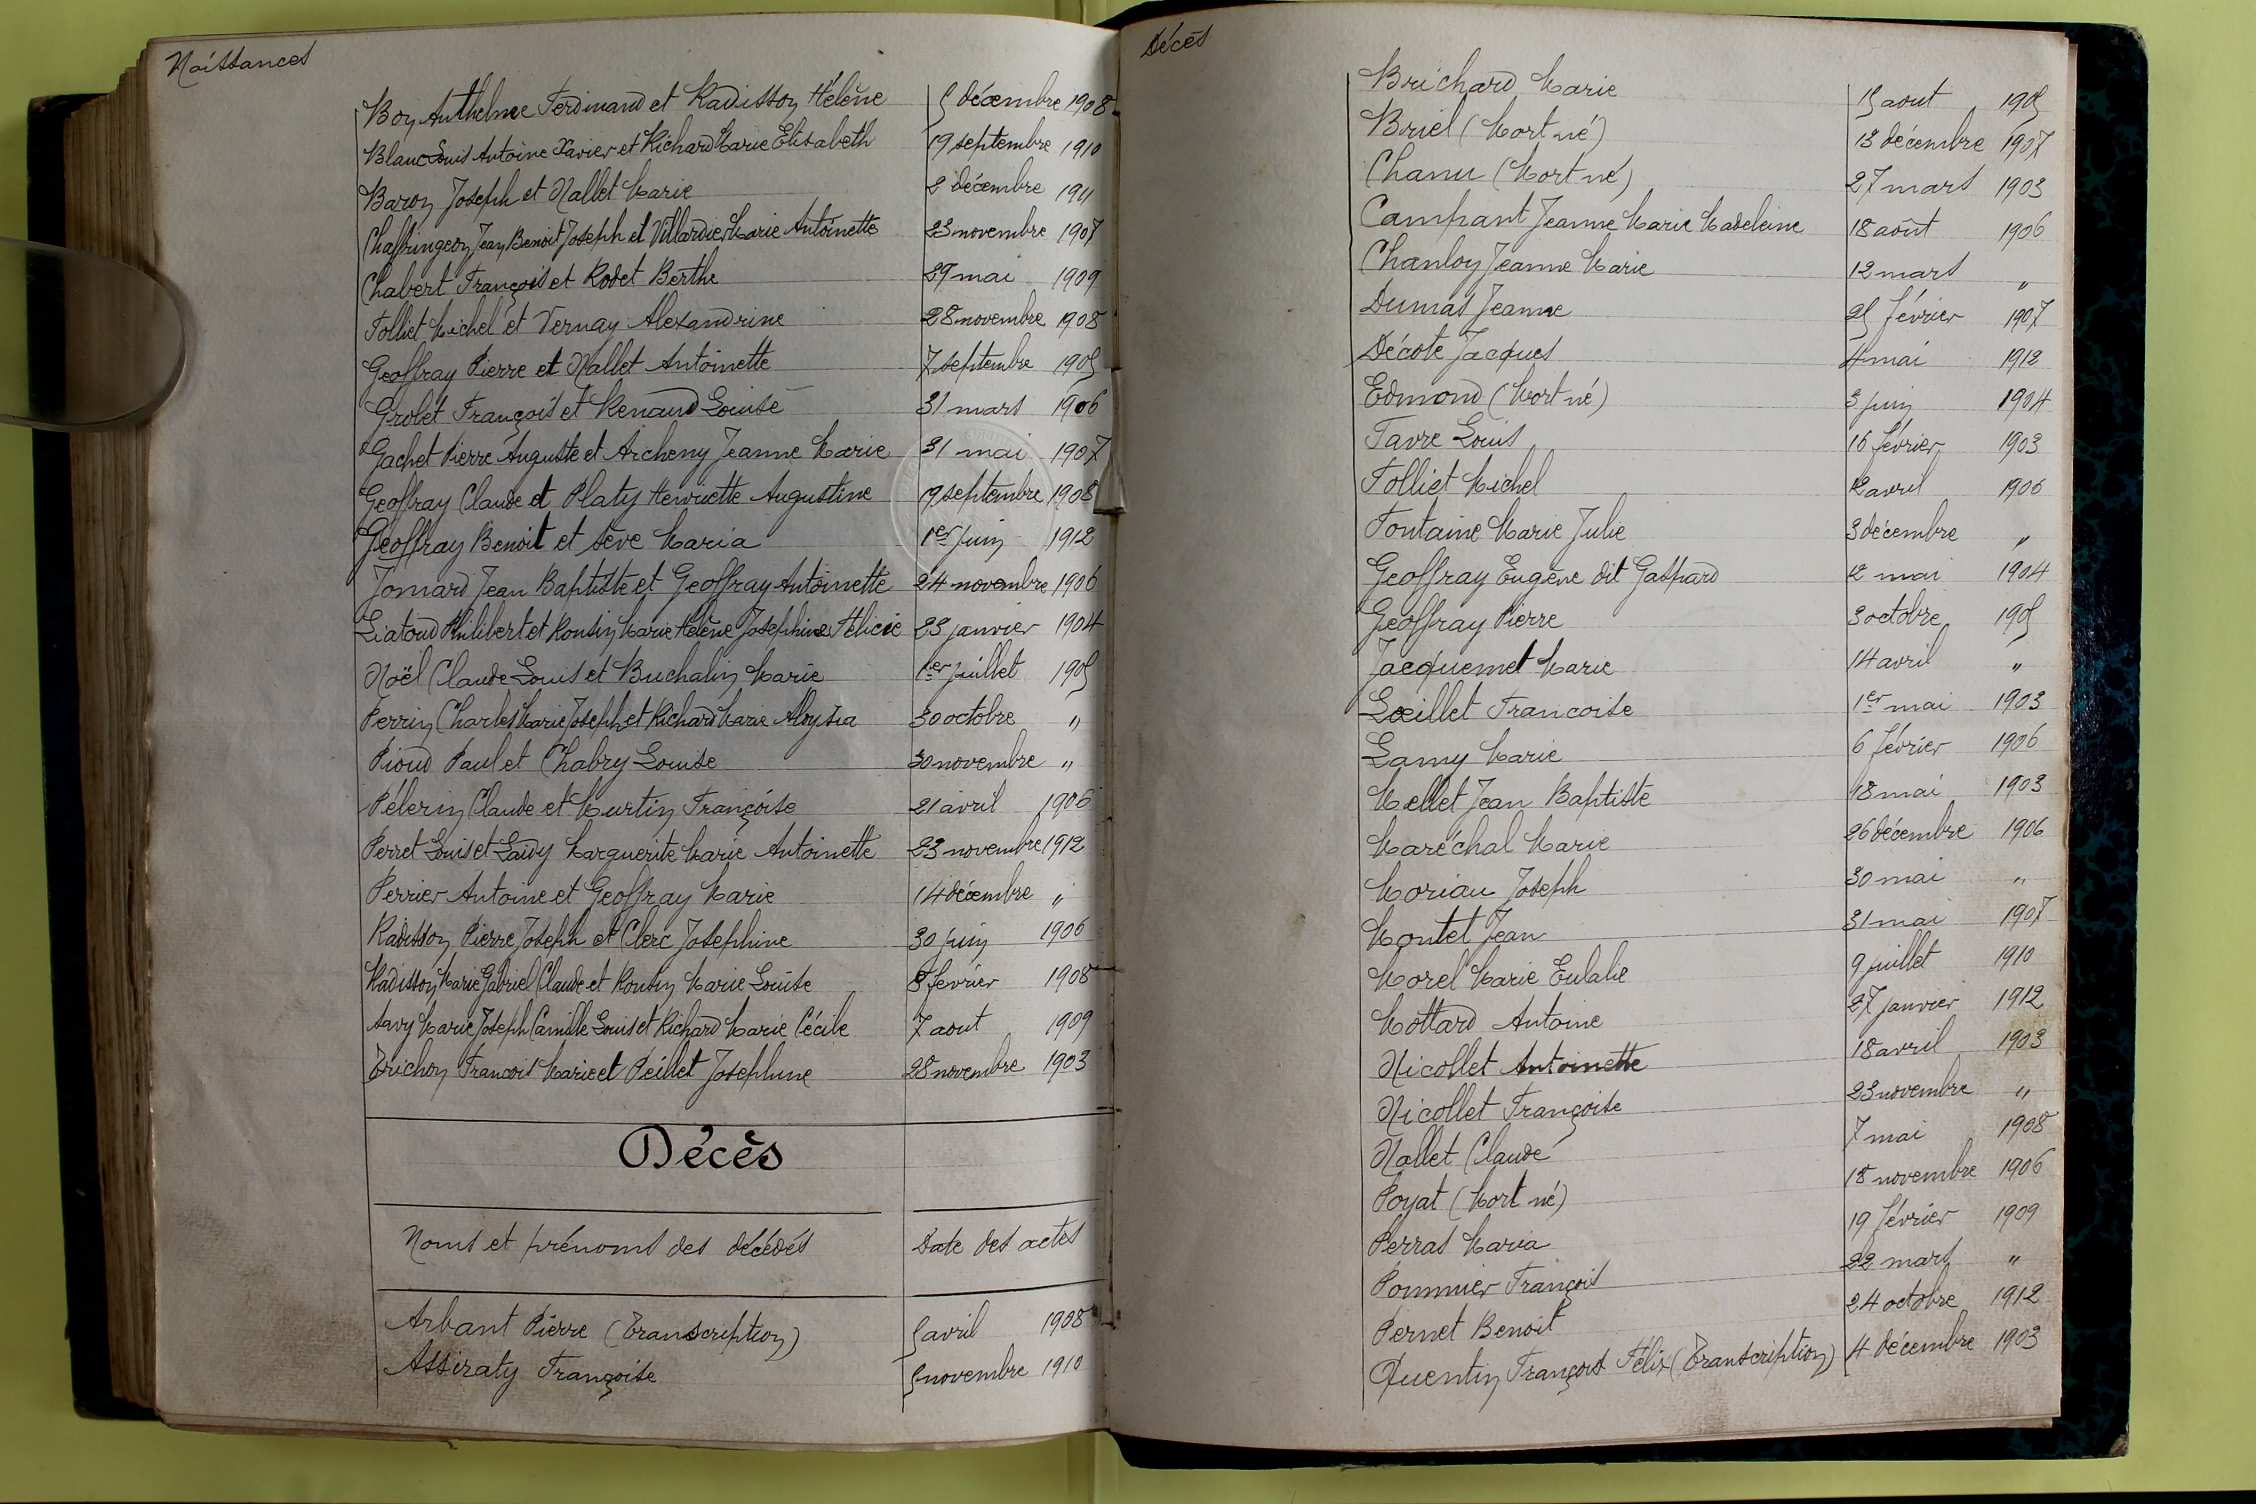 Naissances
Boy Anthelme Ferdinand et Radisson Hélène 5 décembre 1908
Blanc Louis Antoine Xavier et Richard Marie Elisabeth 19 septembre 1910
Baron Joseph et Nallet Marie 2 décembre 1911
Chaffringeon Jean Benoit Joseph et Villardier Marie Antoinette 23 novembre 1907
Chabert François et Rodet Berthe 29 mai 1909
Folliet Michel et Vernay Alexandrine 28 novembre 1908
Geoffray Pierre et Nallet Antoinette 7 septembre 1905
Grobet François et Renaud Louise 31 mars 1906
Gachet Pierre Auguste et Archeny Jeanne Marie 31 mai 1907
Geoffray Claude et Platy Henriette Augustine 19 septembre 1908
Geoffray Benoit et Sève Maria 1er juin 1912
Jomard Jean Baptiste et Geoffray Antoinette 24 novembre 1906
Liatoud Philibert et Rousin Marie Hélène Joséphine Félicie 23 janvier 1904
Noël Claude Louis et Buchalin Marie 1er juillet 1905
Perrin Charles Marie Joseph et Richard Marie Aloysia 30 octobre "
Pioud Paul et Chabry Louise 30 novembre "
Pélerin Claude et Murtin Françoise 21 avril 1906
Perret Louis et Laidy Marguerite Marie Antoinette 23 novembre 1912
Perrier Antoine et Geoffray Marie 14 décembre "
Radisson Pierre Joseph et Clerc Josephine 30 juin 1906
Radisson Marie Gabriel Claude et Rousin Marie Louise 8 février 1908
Savy Marie Joseph Camille Louis et Richard Marie Cécile 7 aout 1909
Trichon François Marie et Peillet Josephine 28 novembre 1903
Décès
Noms et prénoms des décédés Date des actes
Arbant Pierre (Transcription) 5 avril 1908
Assiraty Françoise 5 novembre 1910
Décès
Brichard Marie 15 aout 1905
Briel (Mort né) 13 décembre 1907
Chanu (Mort né) 27 mars 1903
Campant Jeanne Marie Madeleine 18 août 1906
Chanloy Jeanne Marie 12 mars "
Dumas Jeanne 25 février 1907
Décote Jacques 4 mai 1912
Edmond (Mort né) 3 juin 1904
Favre Louis 16 février 1903
Folliet Michel 12 avril 1906
Fontaine Marie Julie 3 décembre "
Geoffray Eugène dit Gaspard 12 mai 1904
Geoffray Pierre 3 octobre 1905
Jacquemet Marie 14 avril "
Lœillet Francoise 1er mai 1903
Lamy Marie 6 février 1906
Mellet Jean Baptiste 18 mai 1903
Maréchal Marie 26 décembre 1906
Moriau Joseph 30 mai "
Montet Jean 31 mai 1907
Morel Marie Eulalie 9 juillet 1910
Mottard Antoine 27 janvier 1912
Nicollet Antoinette 18 avril 1903
Nicollet Françoise 23 novembre "
Nallet Claude 7 mai 1908
Poyat (Mort né) 18 novembre 1906
Perras Maria 19 février 1909
Pommier François 22 mars "
Pernet Benoit 24 octobre 1912
Quentin François Félix (Transcription) 4 décembre 1903